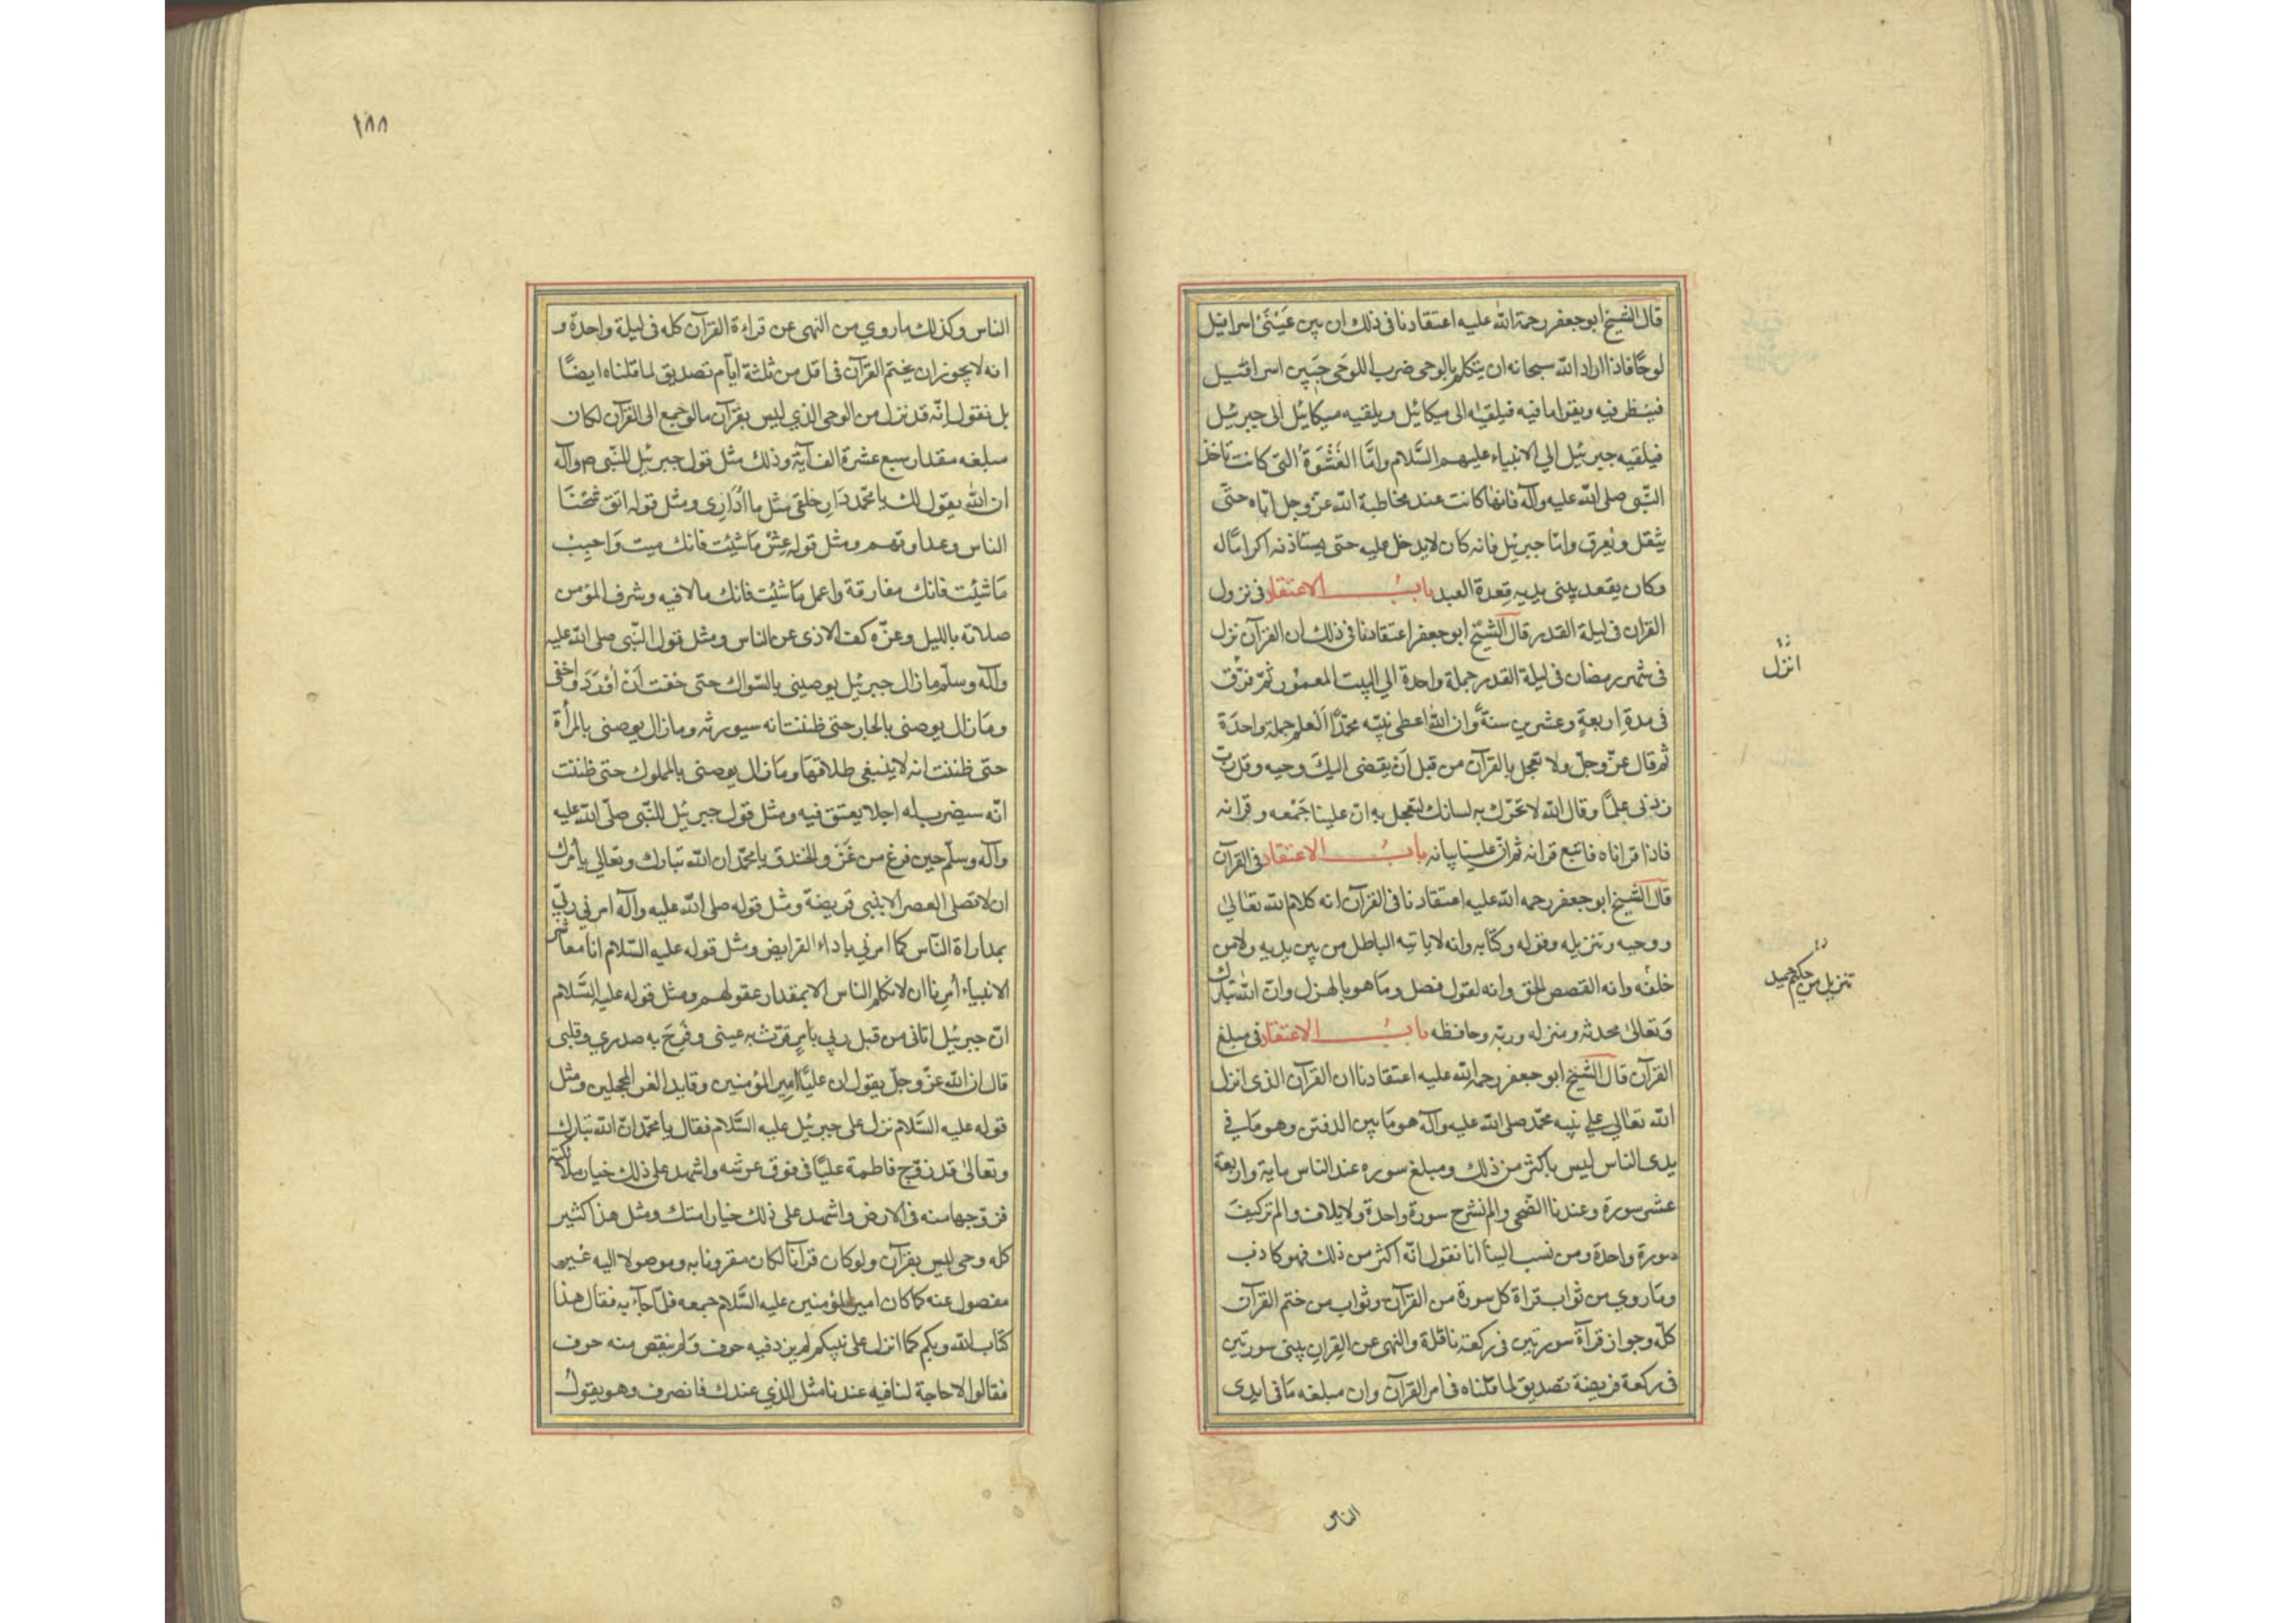 قال الشيخ ابو جعفر رحمة الله عليه اعتقادنا في ذلك ان بين عَيْنَيْ اسرافيل
لوحًا فاذا اراد الله سبحانه ان يتكلم بالوحى ضرب اللوحَ جبين اسرافئيل
فينظر فيه ويقرا ما فيه فيلقيه الى ميكائيل ويلقيه ميكائيل الى جبرئيل
فيلقيه جبرئيل الي الانبياء عليهم السَّلام وامَّا الغَشْوَةُ التى كانت تاخذ
النّبى صلى الله عليه وآله فانها كانت عند مخاطبة الله عزّ وجل ايّاه حتّى
يثقل ويعرق وامّا جبرئيل فانه كان لا يدخل عليه حتى يستاذنه اكرامًا له
وكان يقعد بينى يديه قِعدة العبد بابُ الاعتقاد فى نزول
القران فى ليلة القدر قال الشيخ ابو جعفر اعتقادنا فى ذلك ان القرآن نزل
انزل
فى شهر رمضان فى ليلة القدر جملة واحدة الي البيت المعمور ثمّ نزّق
فى مدةِ اربعةٍ وعشرين سنةً وان الله اعطى نبيّه محمّدًا اَلعلم جملة واحدَة
ثم قال عزّ وجلّ ولا تعجل بالقرآن من قبل اَن يقضى اليكَ وحيه وقل ربّ
زدنى علمًا وقال الله لا تحرّك به لسانك لتعجل به انّ علينا جَمْعه وقرانه
فاذا قراناه فاتبع قرانه ثم انّ علينا بيانه بابُ الاعتقاد فى القرآن
قال الشيخ ابو جعفر رحمه الله عليه اعتقادنا فى القرآن انه كلام الله تعالىٰ
ووحيه وتنزيله وقوله وكتابه وانه لا ياتيه الباطل من بين يديه ولا من
تنزيل من حكيم حميد
خلفه وانه القصص الحق وانه لقول فصل ومَا هو بالهزل وانّ الله تبارك
وَتعالىٰ محدثه ومنزله وربّه وحافظه بابُ الاعتقاد فى مبلغ
القرآن قال الشيخ ابو جعفر رحمه الله عليه اعتقادنا ان القرآن الذى انزل
الله تعالي على نبيه محمّد صلى الله عليه وآله هو مَا بين الدفتين وهو مَا في
يدى الناس ليس باكثر من ذلك ومبلغ سوره عند الناس ماية واربعة
عشر سورة وعندنا الضّحى والم نشرح سورة واحدة ولايلاف والم تركيفَ
سورة واحدة ومن نسب الينا انا نقول انّه اكثر من ذلك فهو كاذب
ومَا روي من ثواب قراة كل سورة من القرآن وثواب من ختم القرآن
كلّه وجواز قرآة سورتين فى ركعة نافلة والنهى عن القِران بينى سورتين
فى ركعة فريضة تصديق لما قلناه فى امر القرآن وان مبلغه مَا فى ايدى
الناس
١٨٨
الناس وكذلك ما روي من النهى عن قراءة القرآن كله فى ليلة واحدة و
انه لا يجوز ان يختم القرآن فى اقل من ثلثة ايّام تصديق لما قلناه ايضًا
بل نقول انّه قد نزل من الوحى الذي ليس بقرآن ما لو جمع الى القرآن لكان
مبلغه مقدار سبع عشرة الف آية وذلك مثل قول جبرئيل للنّبى ص وآله
ان الله يقول لك يا محمّد دَارِ خلقى مثل ما اُدَارِى ومثل قوله اتق شحْنَا
الناس وعداوتهم ومثل قوله عِشْ مَا شِئت فانك ميت وَاحبِبْ
مَا شئت فانك مفارقة واعمل مَا شئت فانك ملاقيه وشرف المؤمن
صلاته بالليل وعزّه كف الاذى عن الناس ومثل قول النّبى صلى الله عليه
وآله وسلّم ما زال جبرئيل يوصينى بالسّواك حتى خفت اَنْ اُدْرَدَ واحْفى
ومَا زال يوصنى بالجار حتى ظننت انه سيورثه وما زال يوصنى بالمرأة
حتى ظننت انه لا ينبغى طلاقهَا ومَا زال يوصنى بالمملوك حتى ظننت
انّه سيضرب له اجلا يعتق فيه ومثل قول جبرئيل للنّبى صلّى الله عليه
وآله وسلّم حين فرغ من غَزْ والخندق يا محمّد ان الله تبارك وتعالي يأمرك
ان لا تصلى العصر الا ببنى قريضة ومثل قوله صلى الله عليه وآله امرني ربّي
بمداراة النّاس كما امرني باداء الفرايض ومثل قوله عليه السّلام انا معاشر
الانبياء اُمرنا ان لا نكلم الناس الا بمقدار عقولهم ومثل قوله عليه السَّلام
انّ جبرئيل اتانى من قبل ربي بامرٍ قرّت به عينى وفرِحَ به صدري وقلبى
قال ان الله عزّ وجلّ يقول ان عليًّا امير المؤمنين وقايد الغر المحجلين ومثل
قوله عليه السَّلام نزل على جبرئيل عليه السَّلام فقال يا محمّد انّ الله تبارك
وتعالىٰ قد زوّج فاطمة عليًّا فى فوق عرشه واشهد على ذلك خيار ملائكته
فزوّجها منه فى الارض واشهد على ذلك خيار امتك ومثل هذا كثير
كله وحى ليس بقرآن ولو كان قرآنًا لكان مقرونا به وموصولا اليه غير
مفصول عنه كما كان امير المؤمنين عليه السَّلام جمعه فلمّا جآء به فقال هذا
كتاب الله ربكم كما انزل على نبيكم لم يزد فيه حرف وَلم ينقص منه حرف
فقالوا لا حاجة لنا فيه عندنا مثل الذي عندك فانصرف وهو يقول